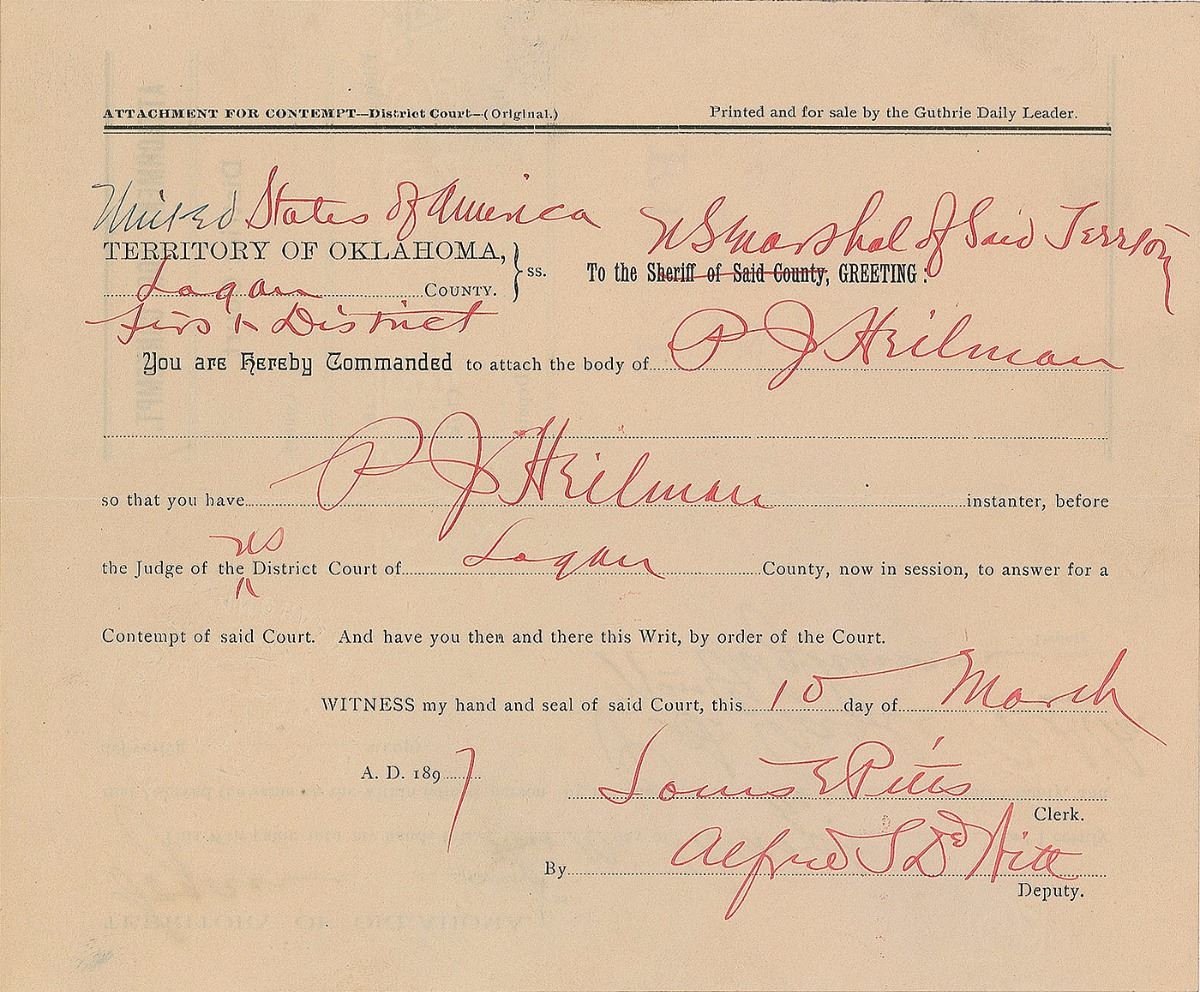 ATTACHMENT FOR CONTEMPT—District Court—(Original.) Printed and for sale by the Guthrie Daily Leader.
United States of America
U S Marshal of Said Territory
TERRITORY OF OKLAHOMA, } ss.
To the Sheriff of Said County, GREETING:
Logan COUNTY.
First District
You are Hereby Commanded to attach the body of P J Heilman
so that you have P J Heilman instanter, before
US
the Judge of the ^ District Court of Logan County, now in session, to answer for a
Contempt of said Court. And have you then and there this Writ, by order of the Court.
WITNESS my hand and seal of said Court, this 10 day of March
A. D. 1897
Louis E Pitts
Clerk.
By Alfred S DeHitt
Deputy.